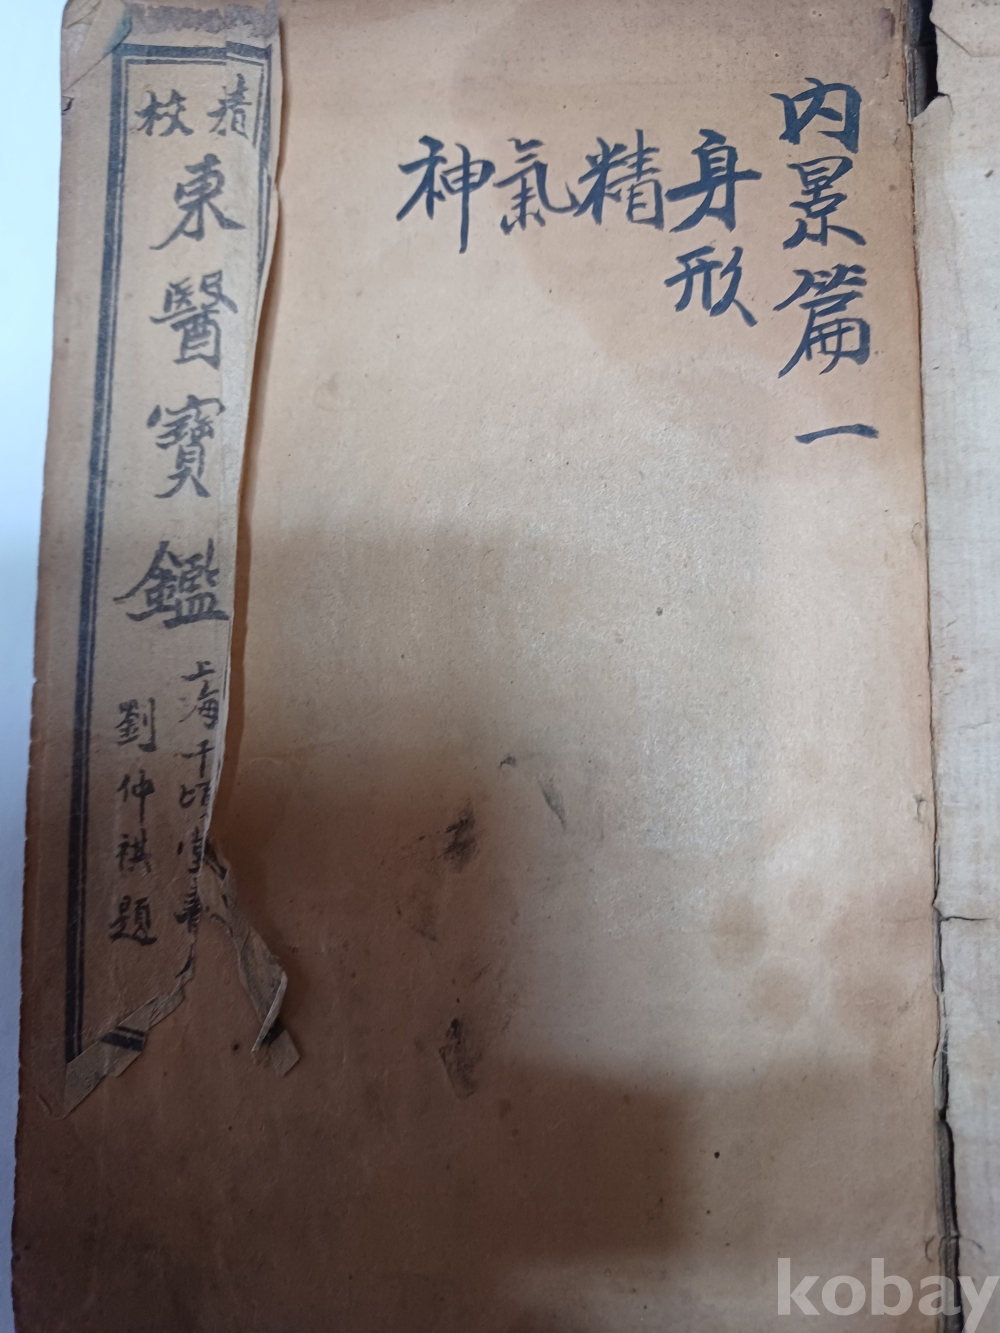 內景篇一
身形
精
氣
神
精校
東醫寶鑑
上海千頃堂書
劉仲祺題
kobay